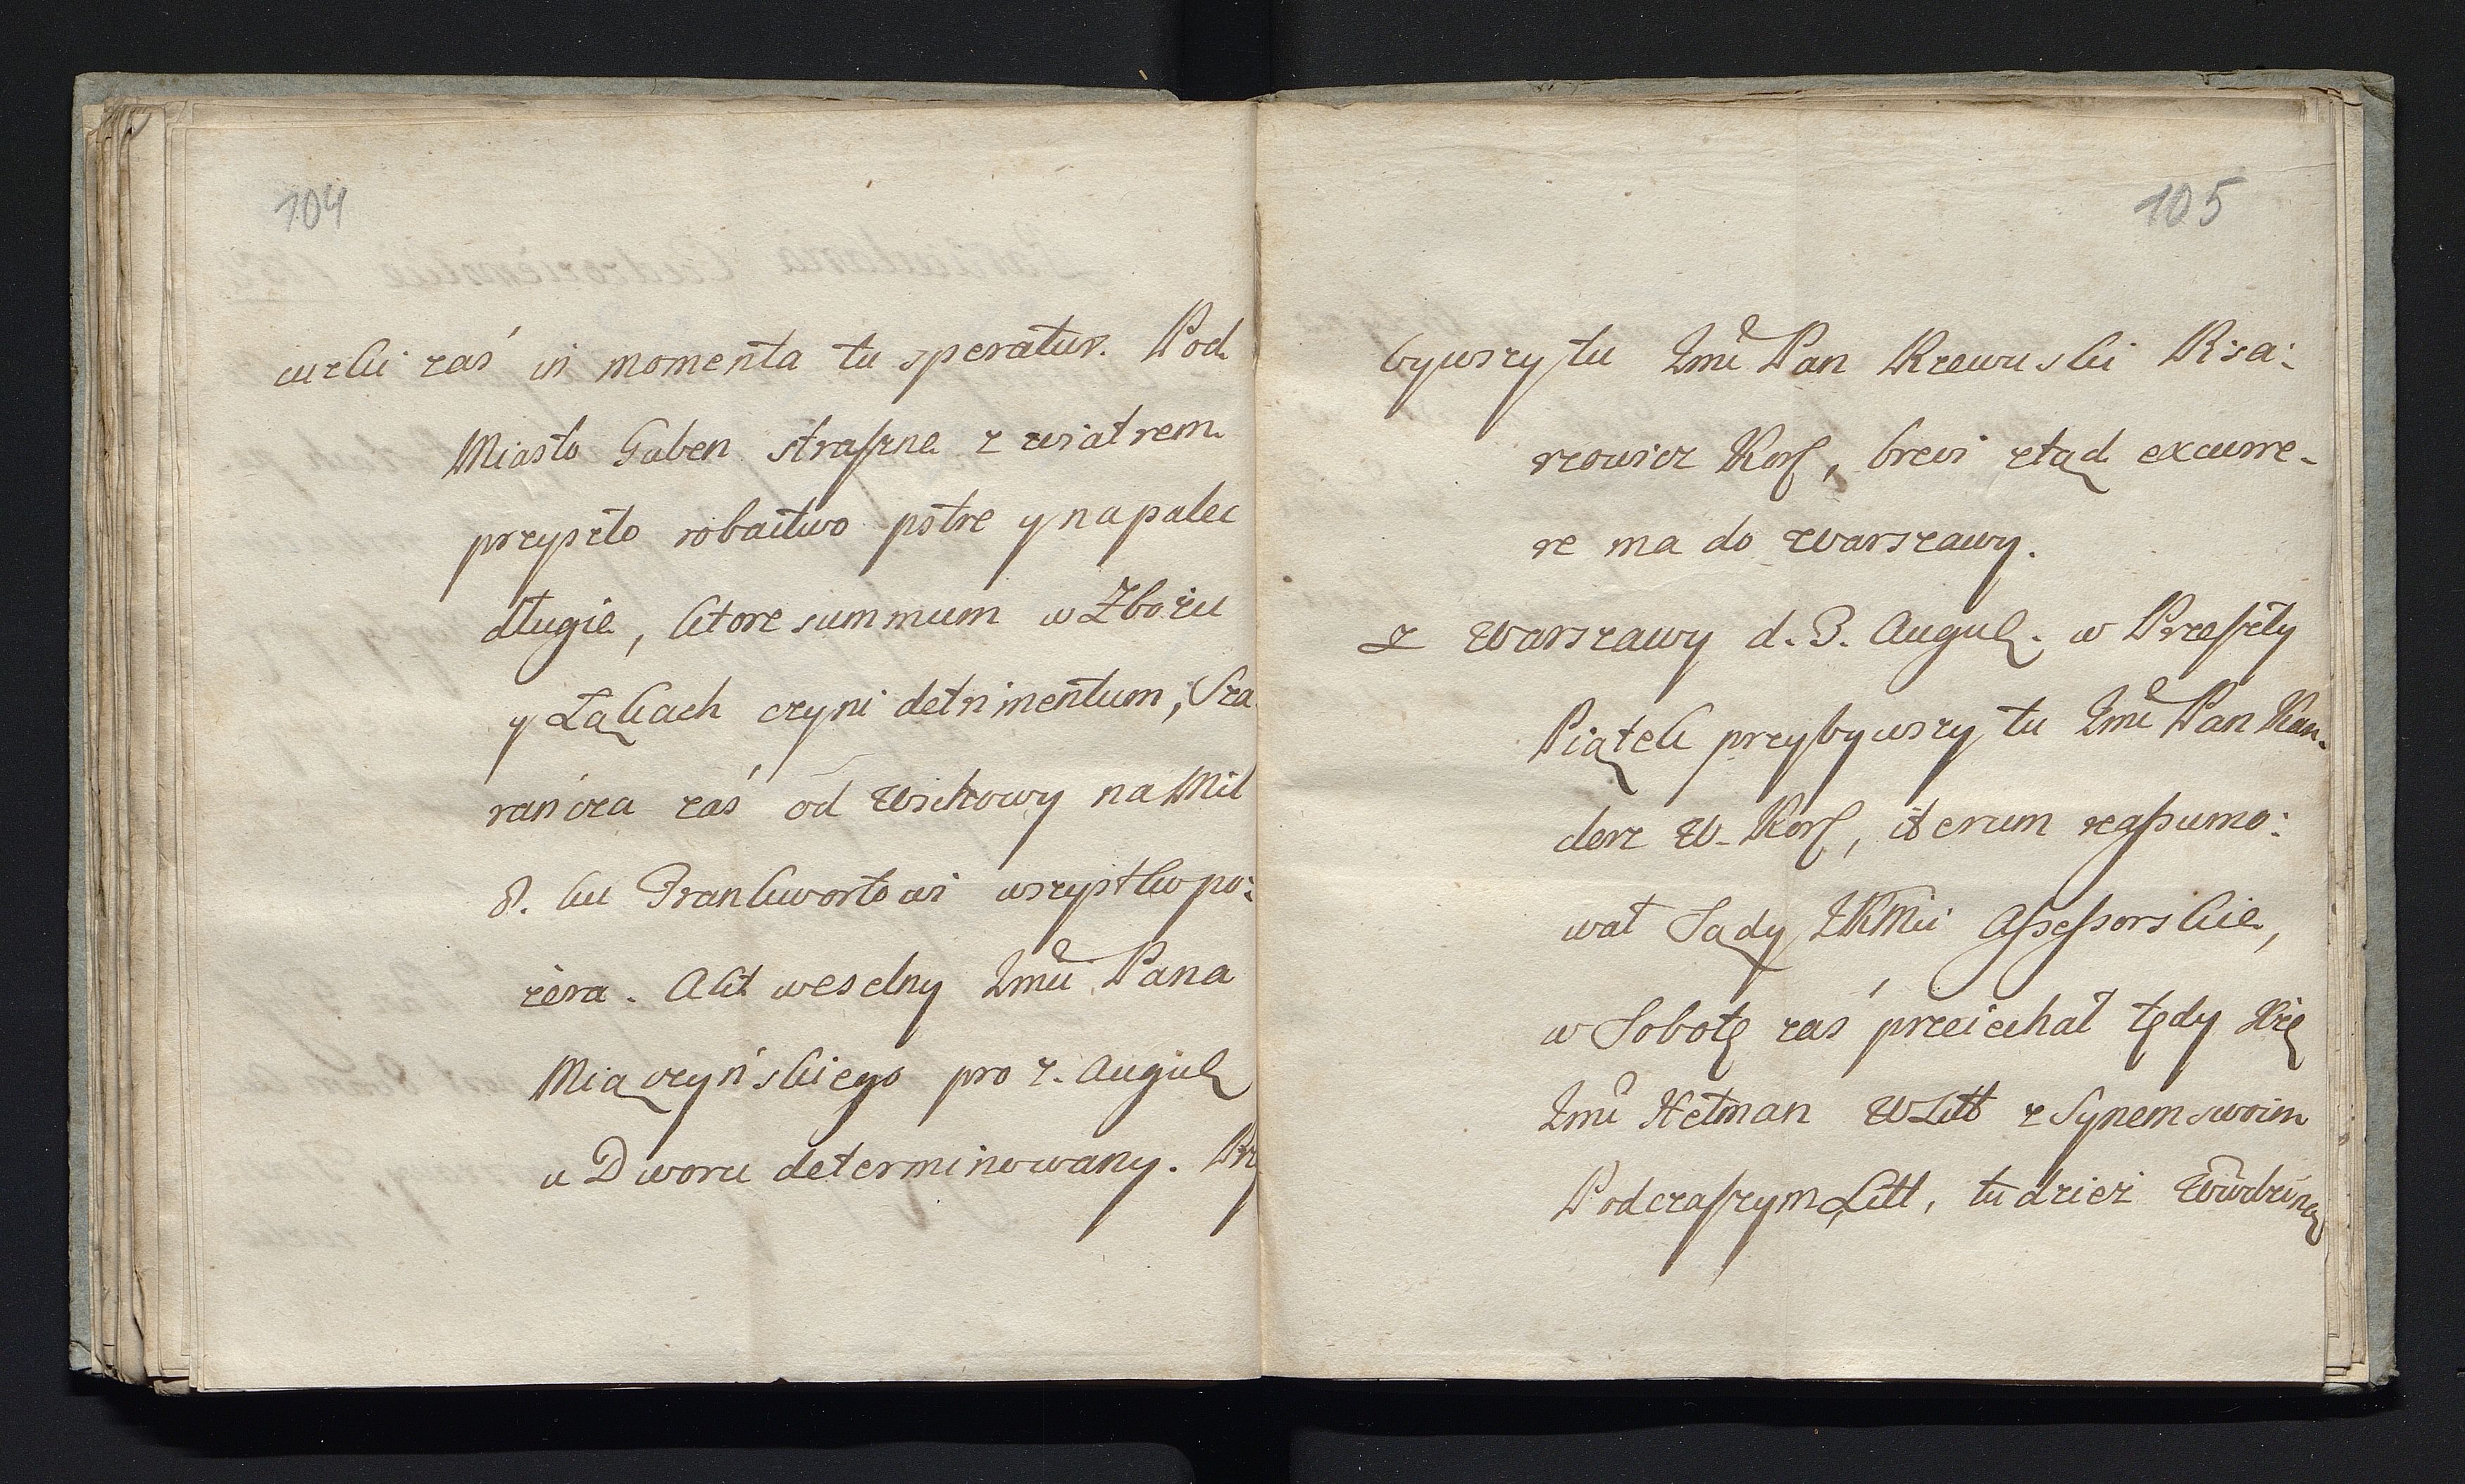 104
wzki zaś in momenta tu speratur. Pod
Miasto Guben straszne z wiatrem
przyszło robactwo pstre y na palec
długie, ktore summum w Zbożu
y Łąkach czyni detrimentum, Sza
rańcza zaś od Wschowy na Mil
8. ku Frankwortowi wszystko po:
żera. Akt weselny Jmci Pana
Miączyńskiego pro 7. Augusti
u Dworu determinowany. Przy
105
bywszy tu Jmć Pan Rzewuski Pisa:
rzowicz Kor, brevi ztąd excurre-
re ma do Warszawy.
Z Warszawy d. 3. Augusti. w Przeszły
Piątek przybywszy tu Jmć Pan Kan-
clerz W. Kor, iterum reassumo:
wał Sądy JKMci Assessorskie,
w Sobotę zaś przeiechał tędy Xżę
Jmć Hetman WLitt z Synem swoim
Podczaszym Litt, tudzież